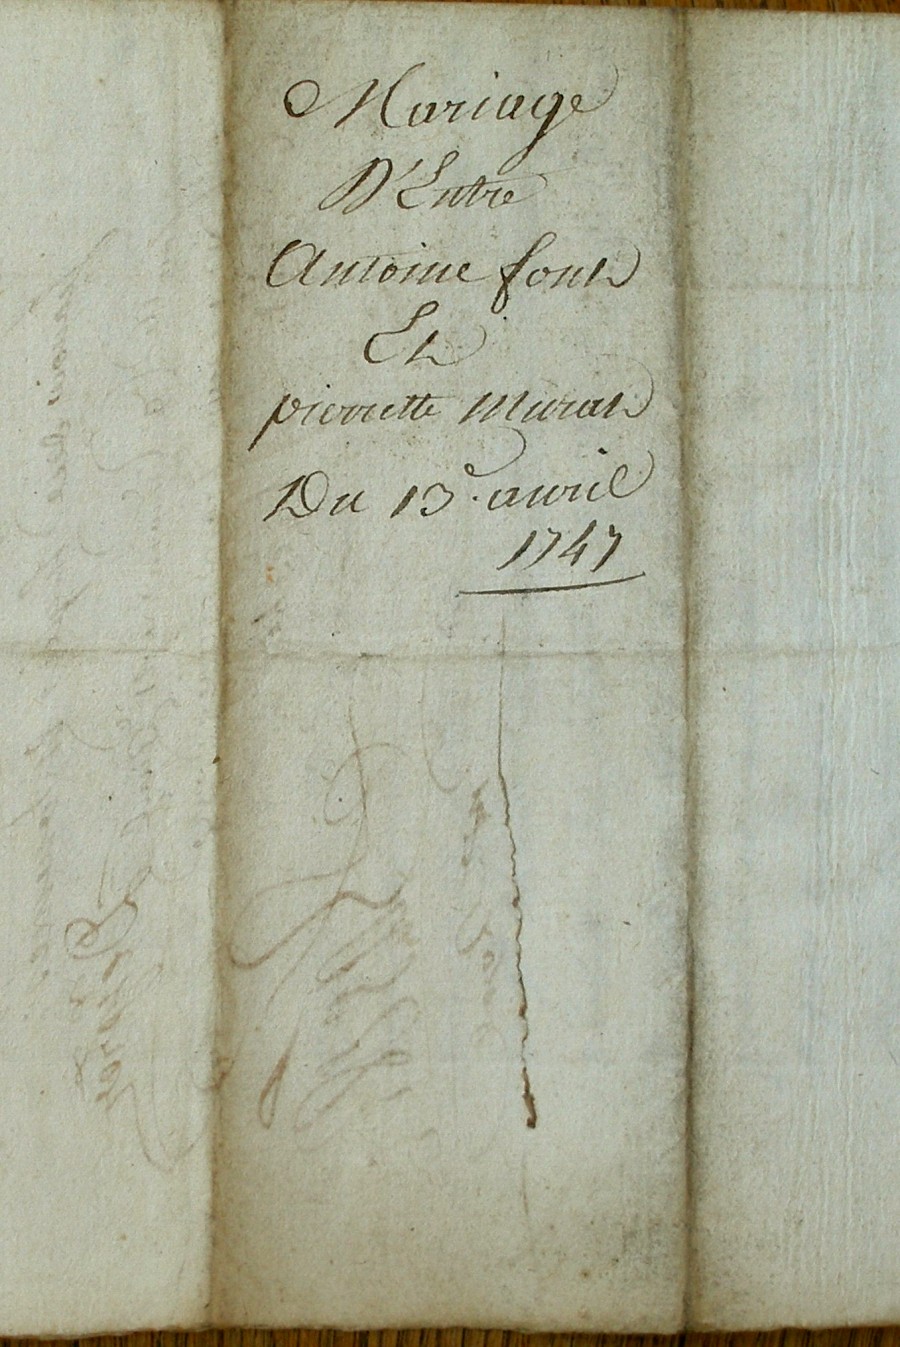 Mariage
D'Entre
Antoine font
Et
pierrette Murat
Du 13e. avril
1747